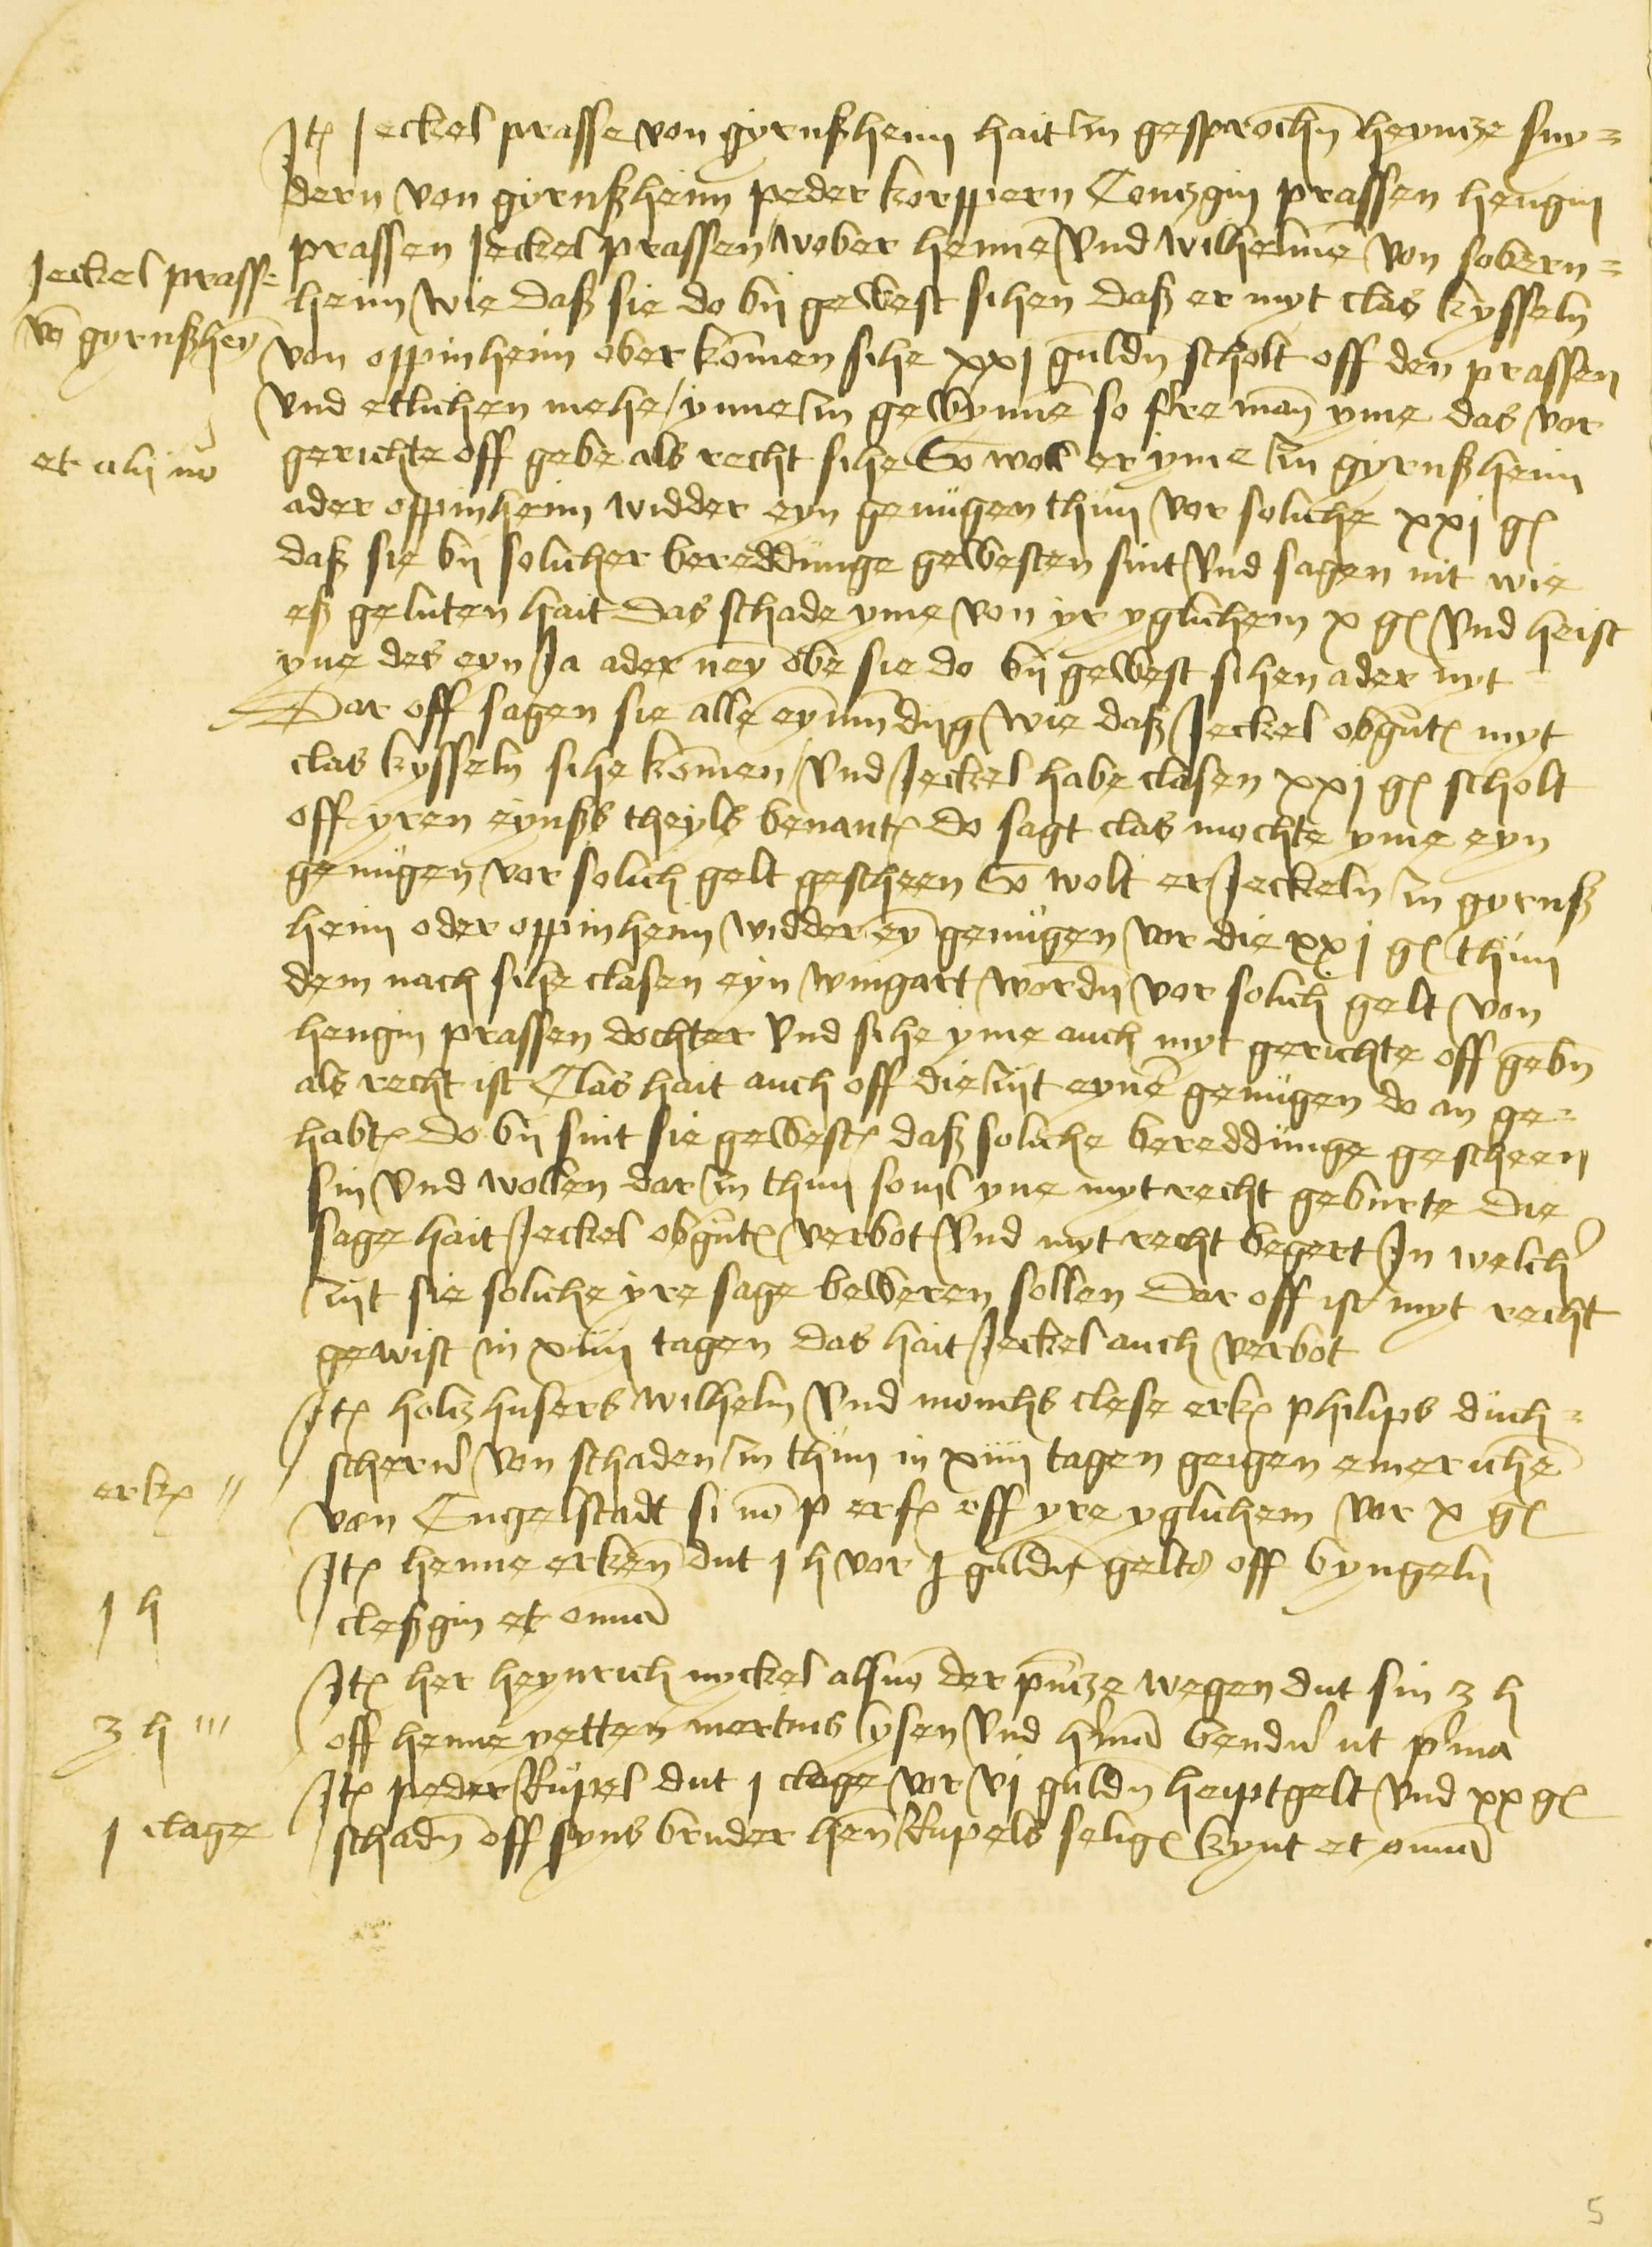 Jt(em) Jeckel prasse von gyrnßheim hait zu gesprochn̄ heyntze sny=
dern von gyrnßheim peder korppern Contzgin prassen hengin
prassen Jeckel prassen wober hennē vnd wilhelmē von sobern=
Jeckel prasse
heim wie daß sie do bij gewest sihen daß er myt clas kysseln
vō gyrnßheȳ
von oppinheim ober komen sihe xxj guldn̄ scholt off den prassen
vnd etlichen mehe yme zu gewynnē so ferre man yme das vor
et alij nō
gerichte off gebe als recht sihe So woll er yme zu gyrnßheim
ader oppinheim widder eyn genůgen thůn vor soliche xxj g(ulden)
daß sie bij solicher bereddůnge gewesten sint vnd sagen nit wie
eß geluten hait das schade yme von yr yglichem x g(ulden) vnd heist
yne des eyn Ja ader ney obe sie do bij gewest sihen ader nyt
Dar off sagen sie alle eynmůndig wie daß Jeckel obgn̄t(en) myt
clas kysseln sihe komen vnd Jeckel habe clasen xxj g(ulden) scholt
off yren eynßs theyls benant(en) do sagt clas mochte yme eyn
genůgen vor solich gelt gescheen So wolt er Jeckeln zu gyrnß
heim oder oppinheim widder eȳ genůgen vor die xxj g(ulden) thůn
dem nach sihe clasen eyn wingart wordn̄ vor solich gelt von
hengin prassen dochter vnd sihe yme auch myt gerichte off gebn̄
als recht ist Clas hait auch off die zijt eynē genůgen do an ge=
habt(en) do bij sint sie gewest(en) daß soliche bereddůnge gescheen
sin vnd wollen dar zu thun souil yne myt recht geburte die
sage hait Jeckel obgn̄t(en) verbot vnd myt recht begert Jn welch(er)
zijt sie soliche yre sage beweren sollen Dar off ist myt recht
gewist in xiiij tagen das hait Jeckel auch verbot
Jt(em) holtzhusers wilhelm vnd monchs clese erk(ennen) philips důch=
schern(er) von schaden zu thůn in xiiij tagen geigen emerichē
erk(ennen) //
von Engelstadt si nō p erf(olgt) off yre yglichem vor x g(ulden)
Jt(em) henne erken̄ dut j h vor j guldn̄ gelts off byngeln
j h
cleßgin et om(n)ia
Jt(em) her heynrich nyckel als vō der p(re)ntze wegen dut sin 3 h
3 h ///
off henne yetten mertins ysen vnd h(er)mā bend(er) ut p(ri)ma
Jt(em) peder Růpel dut j clage vor vj guldn̄ heiptgelt vnd xx g(ulden)
j clage
schadn̄ off syns bruder hen̄ Rupels selig(en) kynt et om(n)ia
5